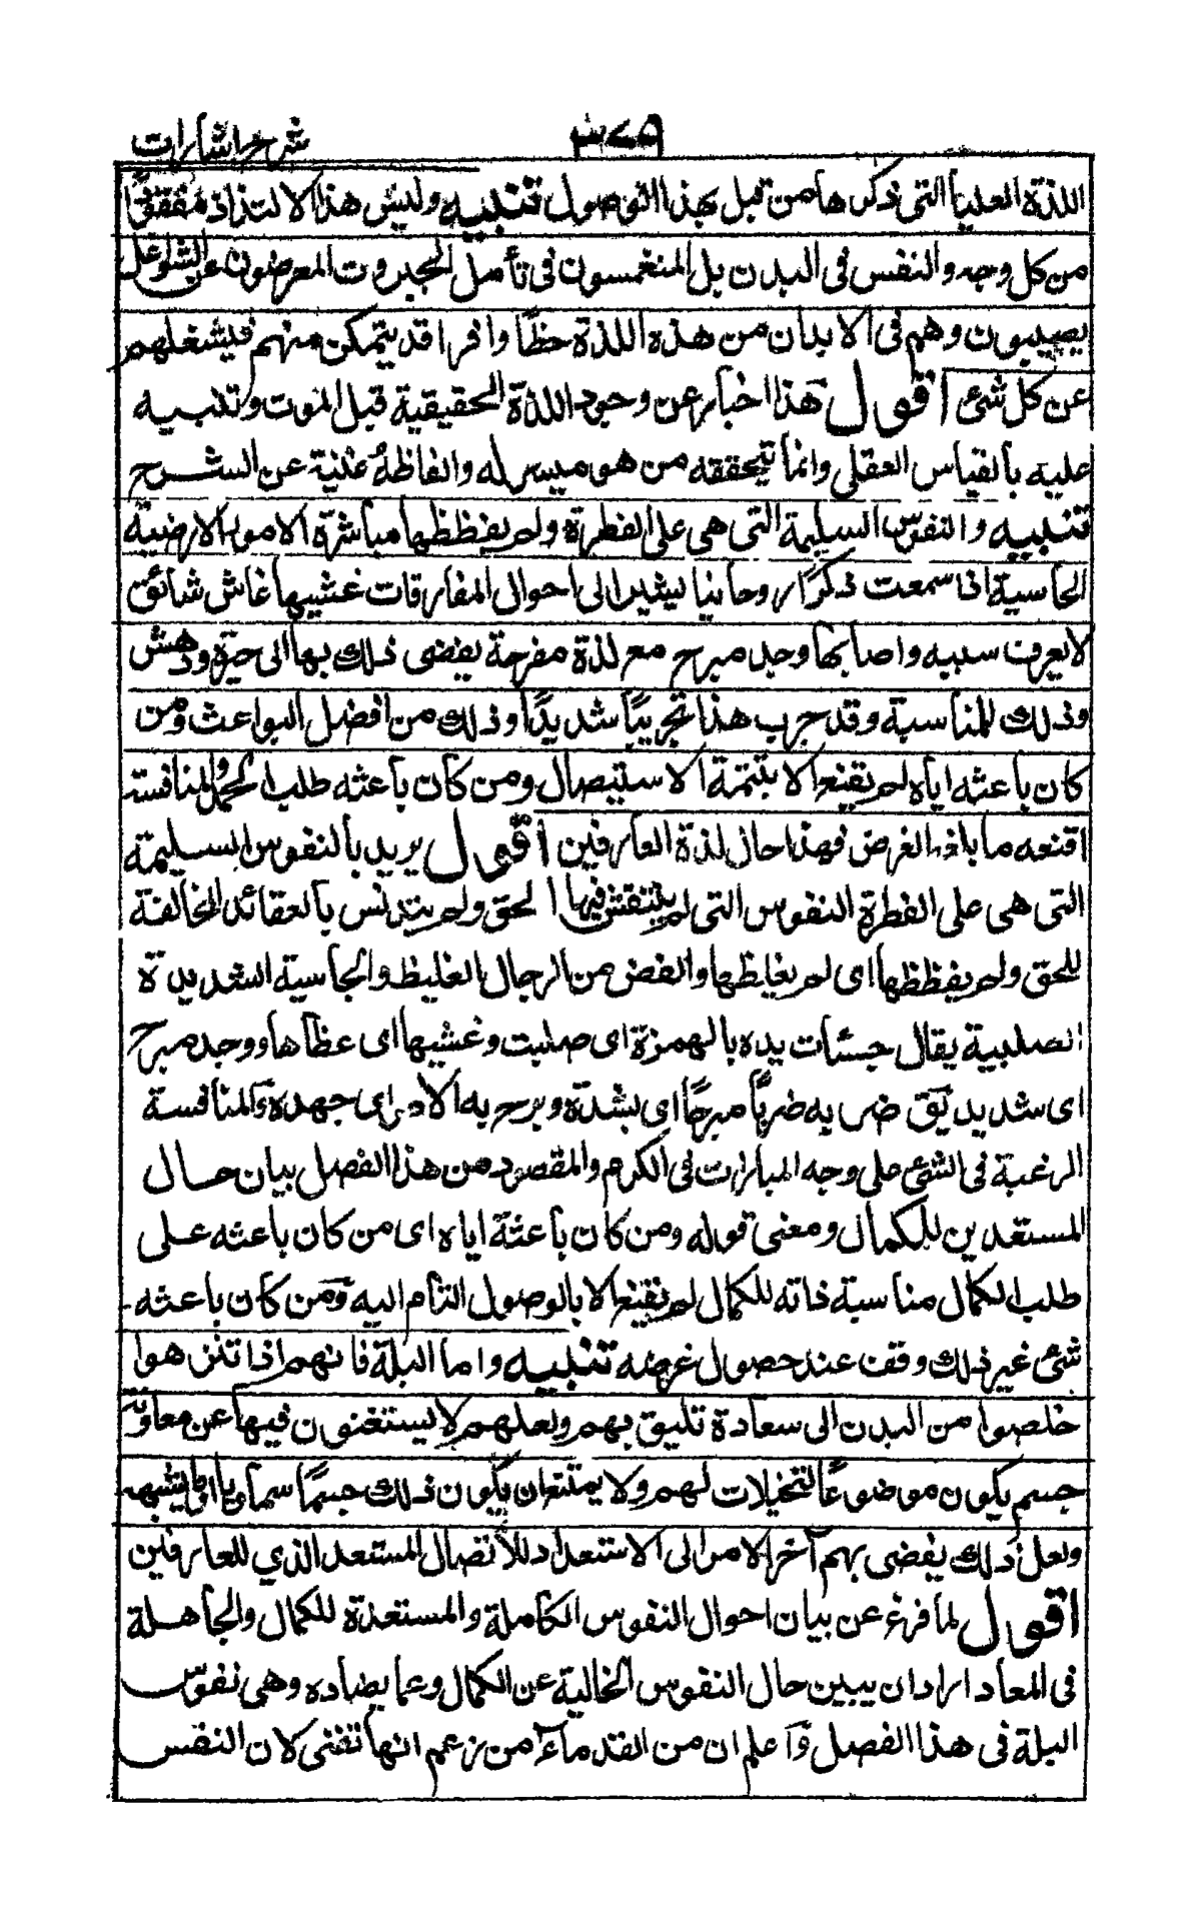 شرح اشارات
اللذة العليا التى ذكرها من قبل بهذا القوصول تنبيه وليس هذا الالتذاذ مفقودًا
من كل وجه والنفس فى البدن بل المنغمسون فى تأمل الجبروت المعرضون عن الشواغل
يصيبون وهم فى الابدان من هذه اللذة حظًا وافرا قد يتمكن منهم فيشغلهم
عن كل شئ اقول هذا اخبار عن وجود اللذة الحقيقية قبل الموت وتنبيه
عليه بالقياس العقلى وانما يتحققه من هو ميسر له والفاظهُ غنية عن الشرح
تنبيه والنفوس السليمة التى هى على الفطرة ولم يفظظها مباشرة الامور الارضية
الجاسية اذا سمعت ذكرًا روحانيا يشير الى احوال المفارقات غشيها غاش شائق
لا يعرف سببه واصابها وجد مبرح مع لذة مفرحة يفضى ذلك بها الى حيرة ودهش
وذلك للمناسبة وقد جرب هذا تجريبًا شديدًا وذلك من افضل البواعث ومن
كان باعثه اياه لم يقنع الا بتتمة الاستبصال ومن كان باعثه طلب الحمد والمنافسة
اقنعه ما بلغه الغرض فهذا حال لذة العارفين اقول يريد بالنفوس السليمة
التى هى على الفطرة النفوس التى لم ينتقش فيها الحق ولم يتدنس بالعقائد المخالفة
للحق ولم يفظظها اى لم يغلظها والفض من الرجال الغليظ والجاسية الشديدة
الصلبية يقال جسئات يده بالهمزة اى صلبت وغشيها اى عظاها ووجد مبرح
اى شديد يق ضربه ضربًا مبرحًا اى بشدة وبرح به الامر اى جهده والمنافسة
الرغبة فى الشئ على وجه المبارات فى الكرم والمقصود من هذا الفصل بيان حال
المستعدين للكمال ومعنى قوله ومن كان باعثة اياه اى من كان باعثه على
طلب الكمال مناسبة ذاته للكمال لم يقنع الا بالوصول التام اليه ومن كان باعثه
شئ غير ذلك وقف عند حصول غرضه تنبيه واما البلة فانهم اذا تنزهوا
خلصوا من البدن الى سعادة تليق بهم ولعلهم لا يستغنون فيها عن معاونة
جسم يكون موضوعًا لتخيلات لهم ولا يمتنع ان يكون ذلك جسمًا سماويا او ما يشبهه
ولعل ذلك يفضى بهم آخر الامر الى الاستعداد للاتصال المستعد الذي للعارفين
اقول لما فرغ عن بيان احوال النفوس الكاملة والمستعدة للكمال والجاهلة
فى المعاد اراد ان يبين حال النفوس الخالية عن الكمال وعما يضاده وهى نفوس
البلة فى هذا الفصل واعلم ان من القدماء من زعم انها تفنى لان النفس